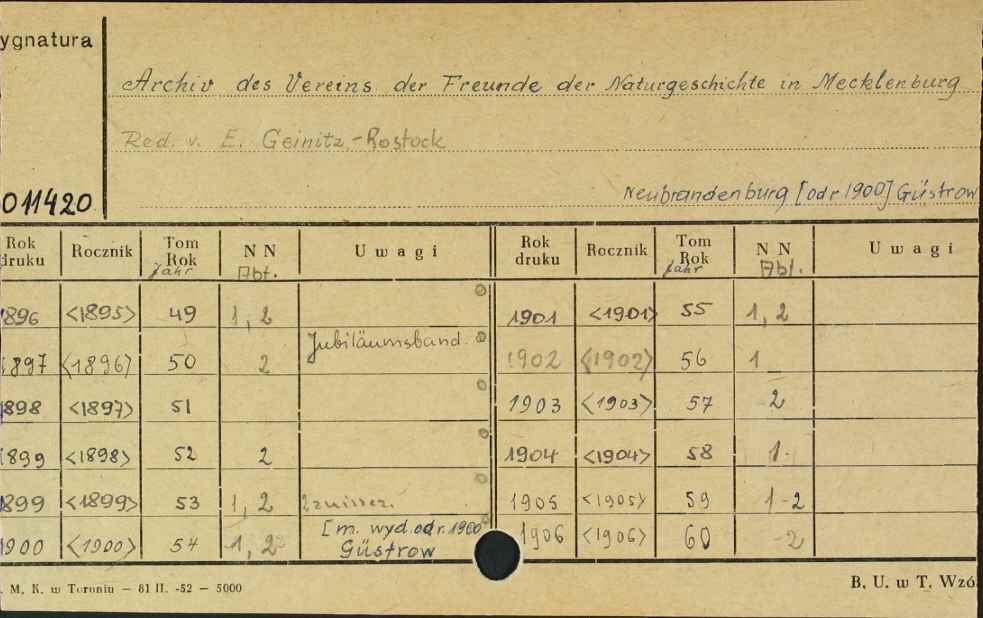 ygnatura
Archiv des Vereins der Freunde der Naturgeschichte in Mecklenburg
Red. v. E. Geinitz.-Rostock
011420
Neubrandenburg [od r 1900] Güstrow
Rok druku Rocznik Tom Rok Jahr N N Abt. U w a g i Rok druku Rocznik Tom Rok Jahr N N Abt. U w a g i
1896 <1895> 49 1, 2 1901 <1901> 55 1, 2
1897 <1896> 50 2 Jubiläumsband. 1902 <1902> 56 1
1898 <1897> 51 1903 <1903> 57 2
1899 <1898> 52 2 1904 <1904> 58 1.
1899 <1899> 53 1, 2 1905 <1905> 59 1-2
1900 <1900> 54 1, 2 [m. wyd. od r. 1900 Güstrow 1906 <1906> 60 2
. M. K. w Toruniu — 81 II. -52 — 5000
B. U. w T. Wzó